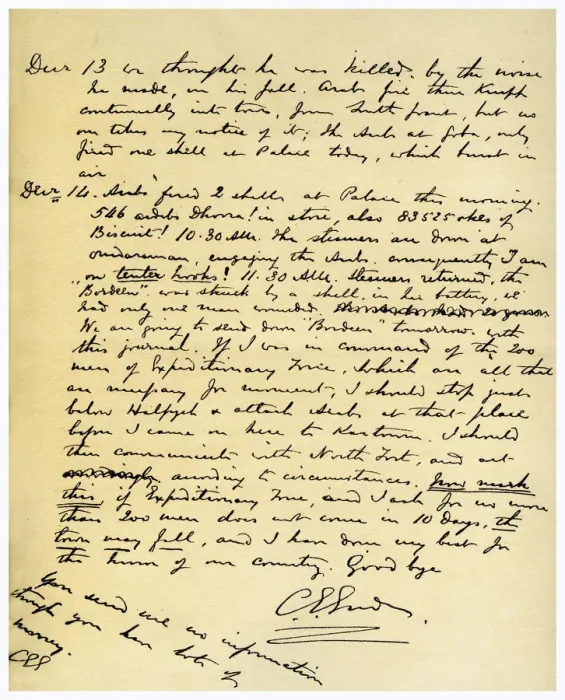 Decr 13 we thought he was killed, by the noise
he made, in his fall. Arabs fire their Krupp
continually into town, from South front, but no
one takes any notice of it; the Arabs at Goba, only
fired one shell at Palace today, which burst in
air
Decr 14. Arabs fired 2 shells at Palace this morning.
546 ardebs Dhoora! in store, also 83525 okes of
Biscuit! 10.30 AM. The steamers are down at
Omdurman, engaging the Arabs. consequently I am
"on tenter hooks! 11.30 AM. Steamers returned, the
"Bordeen" was struck by a shell, in her battery, we
had only one man wounded.
We are going to send down "Bordeen" tomorrow. with
this journal. If I was in command of the 200
men of Expeditionary Force, which are all that
are necessary for moment, I should stop just
below Halfyeh & attack Arabs at that place
before I came on here to Kartoum. I should
then communicate with North Fort, and act
according to circumstances. Now mark
this, if Expeditionary Force, and I ask for no more
than 200 men does not come in 10 days, the
town may fall, and I have done my best for
the honor of our country. Good bye
C.G.Gordon
You send me no information
though you have lots of
money.
CGG